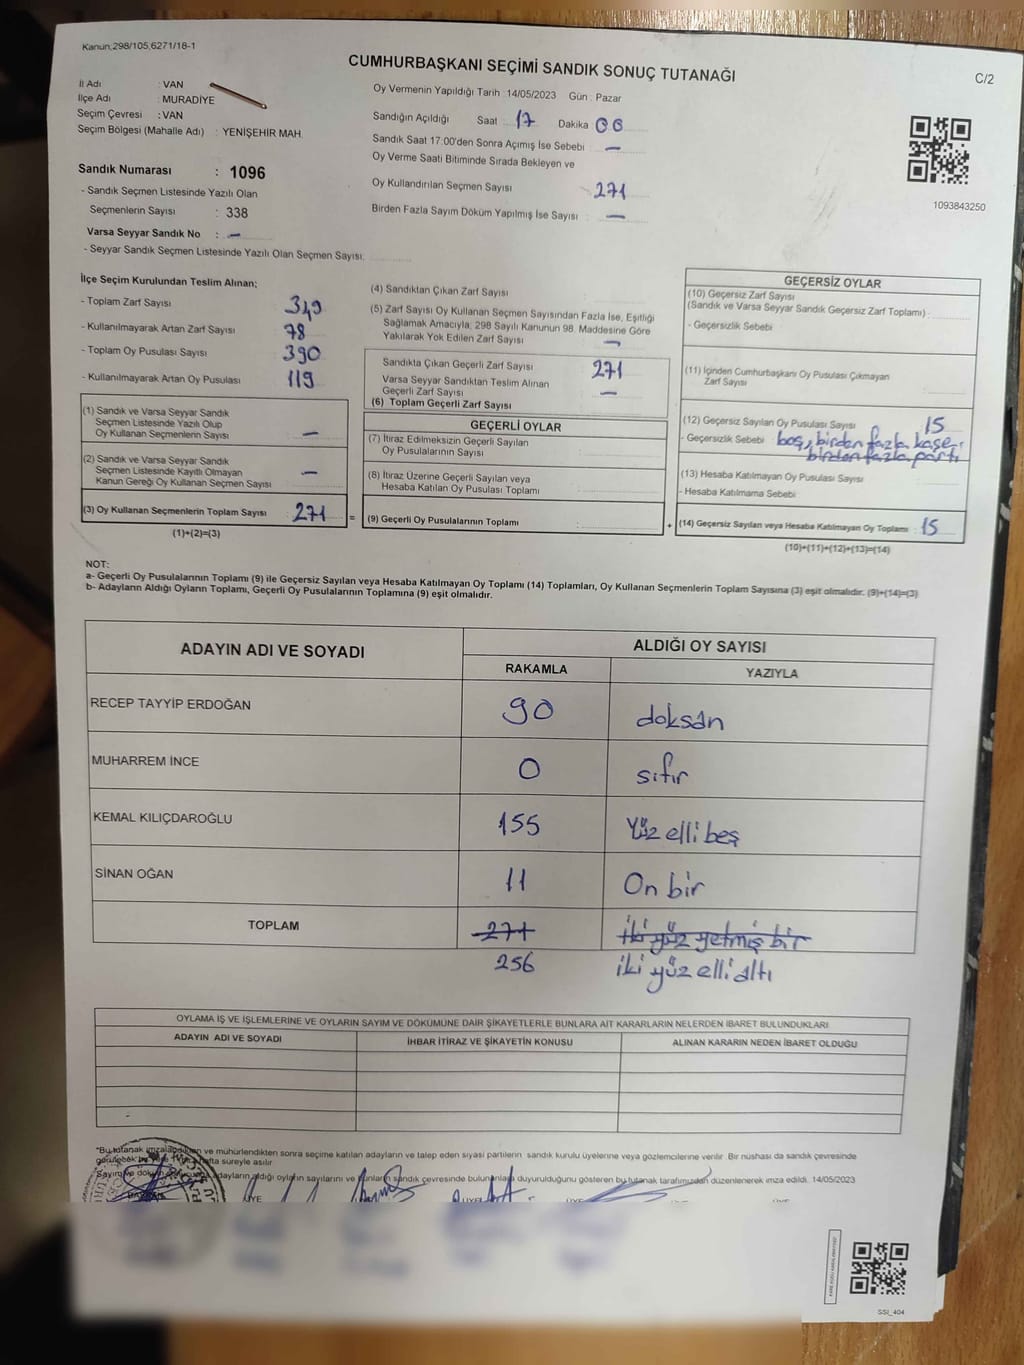 Kanun;298/105,6271/18-1
CUMHURBAŞKANI SEÇİMİ SANDIK SONUÇ TUTANAĞI
C/2
İl Adı : VAN
İlçe Adı : MURADİYE
Seçim Çevresi : VAN
Seçim Bölgesi (Mahalle Adı) : YENİŞEHİR MAH.
Sandık Numarası : 1096
- Sandık Seçmen Listesinde Yazılı Olan
Seçmenlerin Sayısı : 338
Varsa Seyyar Sandık No : —
- Seyyar Sandık Seçmen Listesinde Yazılı Olan Seçmen Sayısı:
Oy Vermenin Yapıldığı Tarih : 14/05/2023 Gün : Pazar
Sandığın Açıldığı Saat : 17 Dakika 00
Sandık Saat 17:00'den Sonra Açımış İse Sebebi : —
Oy Verme Saati Bitiminde Sırada Bekleyen ve
Oy Kullandırılan Seçmen Sayısı : 271
Birden Fazla Sayım Döküm Yapılmış İse Sayısı : —
1093843250
İlçe Seçim Kurulundan Teslim Alınan;
- Toplam Zarf Sayısı : 349
- Kullanılmayarak Artan Zarf Sayısı : 78
- Toplam Oy Pusulası Sayısı : 390
- Kullanılmayarak Artan Oy Pusulası : 119
(1) Sandık ve Varsa Seyyar Sandık
Seçmen Listesinde Yazılı Olup
Oy Kullanan Seçmenlerin Sayısı : —
(2) Sandık ve Varsa Seyyar Sandık
Seçmen Listesinde Kayıtlı Olmayan
Kanun Gereği Oy Kullanan Seçmen Sayısı : —
(3) Oy Kullanan Seçmenlerin Toplam Sayısı : 271
(1)+(2)=(3)
=
(4) Sandıktan Çıkan Zarf Sayısı :
(5) Zarf Sayısı Oy Kullanan Seçmen Sayısından Fazla İse, Eşitliği
Sağlamak Amacıyla; 298 Sayılı Kanunun 98. Maddesine Göre
Yakılarak Yok Edilen Zarf Sayısı : —
Sandıkta Çıkan Geçerli Zarf Sayısı : 271
Varsa Seyyar Sandıktan Teslim Alınan
Geçerli Zarf Sayısı : —
(6) Toplam Geçerli Zarf Sayısı :
GEÇERLİ OYLAR
(7) İtiraz Edilmeksizin Geçerli Sayılan
Oy Pusulasının Sayısı :
(8) İtiraz Üzerine Geçerli Sayılan veya
Hesaba Katılan Oy Pusulası Toplamı :
(9) Geçerli Oy Pusulalarının Toplamı :
+
GEÇERSİZ OYLAR
(10) Geçersiz Zarf Sayısı
(Sandık ve Varsa Seyyar Sandık Geçersiz Zarf Toplamı) :
- Geçersizlik Sebebi
(11) İçinden Cumhurbaşkanı Oy Pusulası Çıkmayan
Zarf Sayısı
(12) Geçersiz Sayılan Oy Pusulası Sayısı : 15
- Geçersizlik Sebebi boş, birden fazla kaşe,
birden fazla parti
(13) Hesaba Katılmayan Oy Pusulası Sayısı :
- Hesaba Katılmama Sebebi
(14) Geçersiz Sayılan veya Hesaba Katılmayan Oy Toplamı : 15
(10)+(11)+(12)+(13)=(14)
NOT:
a- Geçerli Oy Pusulalarının Toplamı (9) ile Geçersiz Sayılan veya Hesaba Katılmayan Oy Toplamı (14) Toplamları, Oy Kullanan Seçmenlerin Toplam Sayısına (3) eşit olmalıdır. (9)+(14)=(3)
b- Adayların Aldığı Oyların Toplamı, Geçerli Oy Pusulalarının Toplamına (9) eşit olmalıdır.
ADAYIN ADI VE SOYADI
ALDIĞI OY SAYISI
RAKAMLA YAZIYLA
RECEP TAYYİP ERDOĞAN 90 doksan
MUHARREM İNCE 0 sıfır
KEMAL KILIÇDAROĞLU 155 Yüz elli beş
SİNAN OĞAN 11 On bir
TOPLAM 271 iki yüz yetmiş bir
256 iki yüz elli altı
OYLAMA İŞ VE İŞLEMLERİNE VE OYLARIN SAYIM VE DÖKÜMÜNE DAİR ŞİKAYETLERLE BUNLARA AİT KARARLARIN NELERDEN İBARET BULUNDUKLARI
ADAYIN ADI VE SOYADI İHBAR İTİRAZ VE ŞİKAYETİN KONUSU ALINAN KARARIN NEDEN İBARET OLDUĞU
*Bu tutanak imzalandıktan ve mühürlendikten sonra seçime katılan adayların ve talep eden siyasi partilerin sandık kurulu üyelerine veya gözlemcilerine verilir. Bir nüshası da sandık çevresinde
görülebilecek bir yere hafta süreyle asılır
Sayım ve döküm adayların aldığı oyların sayılarını ve bunların sandık çevresinde bulunanlara duyurulduğunu gösteren bu tutanak tarafımızdan düzenlenerek imza edildi. 14/05/2023
SSİ_404